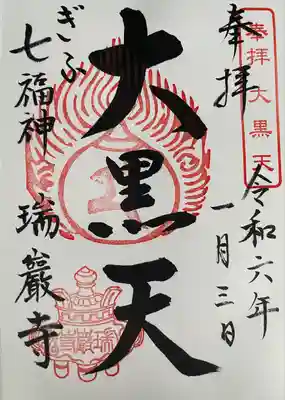 奉拝大黒天
奉拝
令和六年
一月三日
大黒天
ぎふ
七福神
瑞巖寺